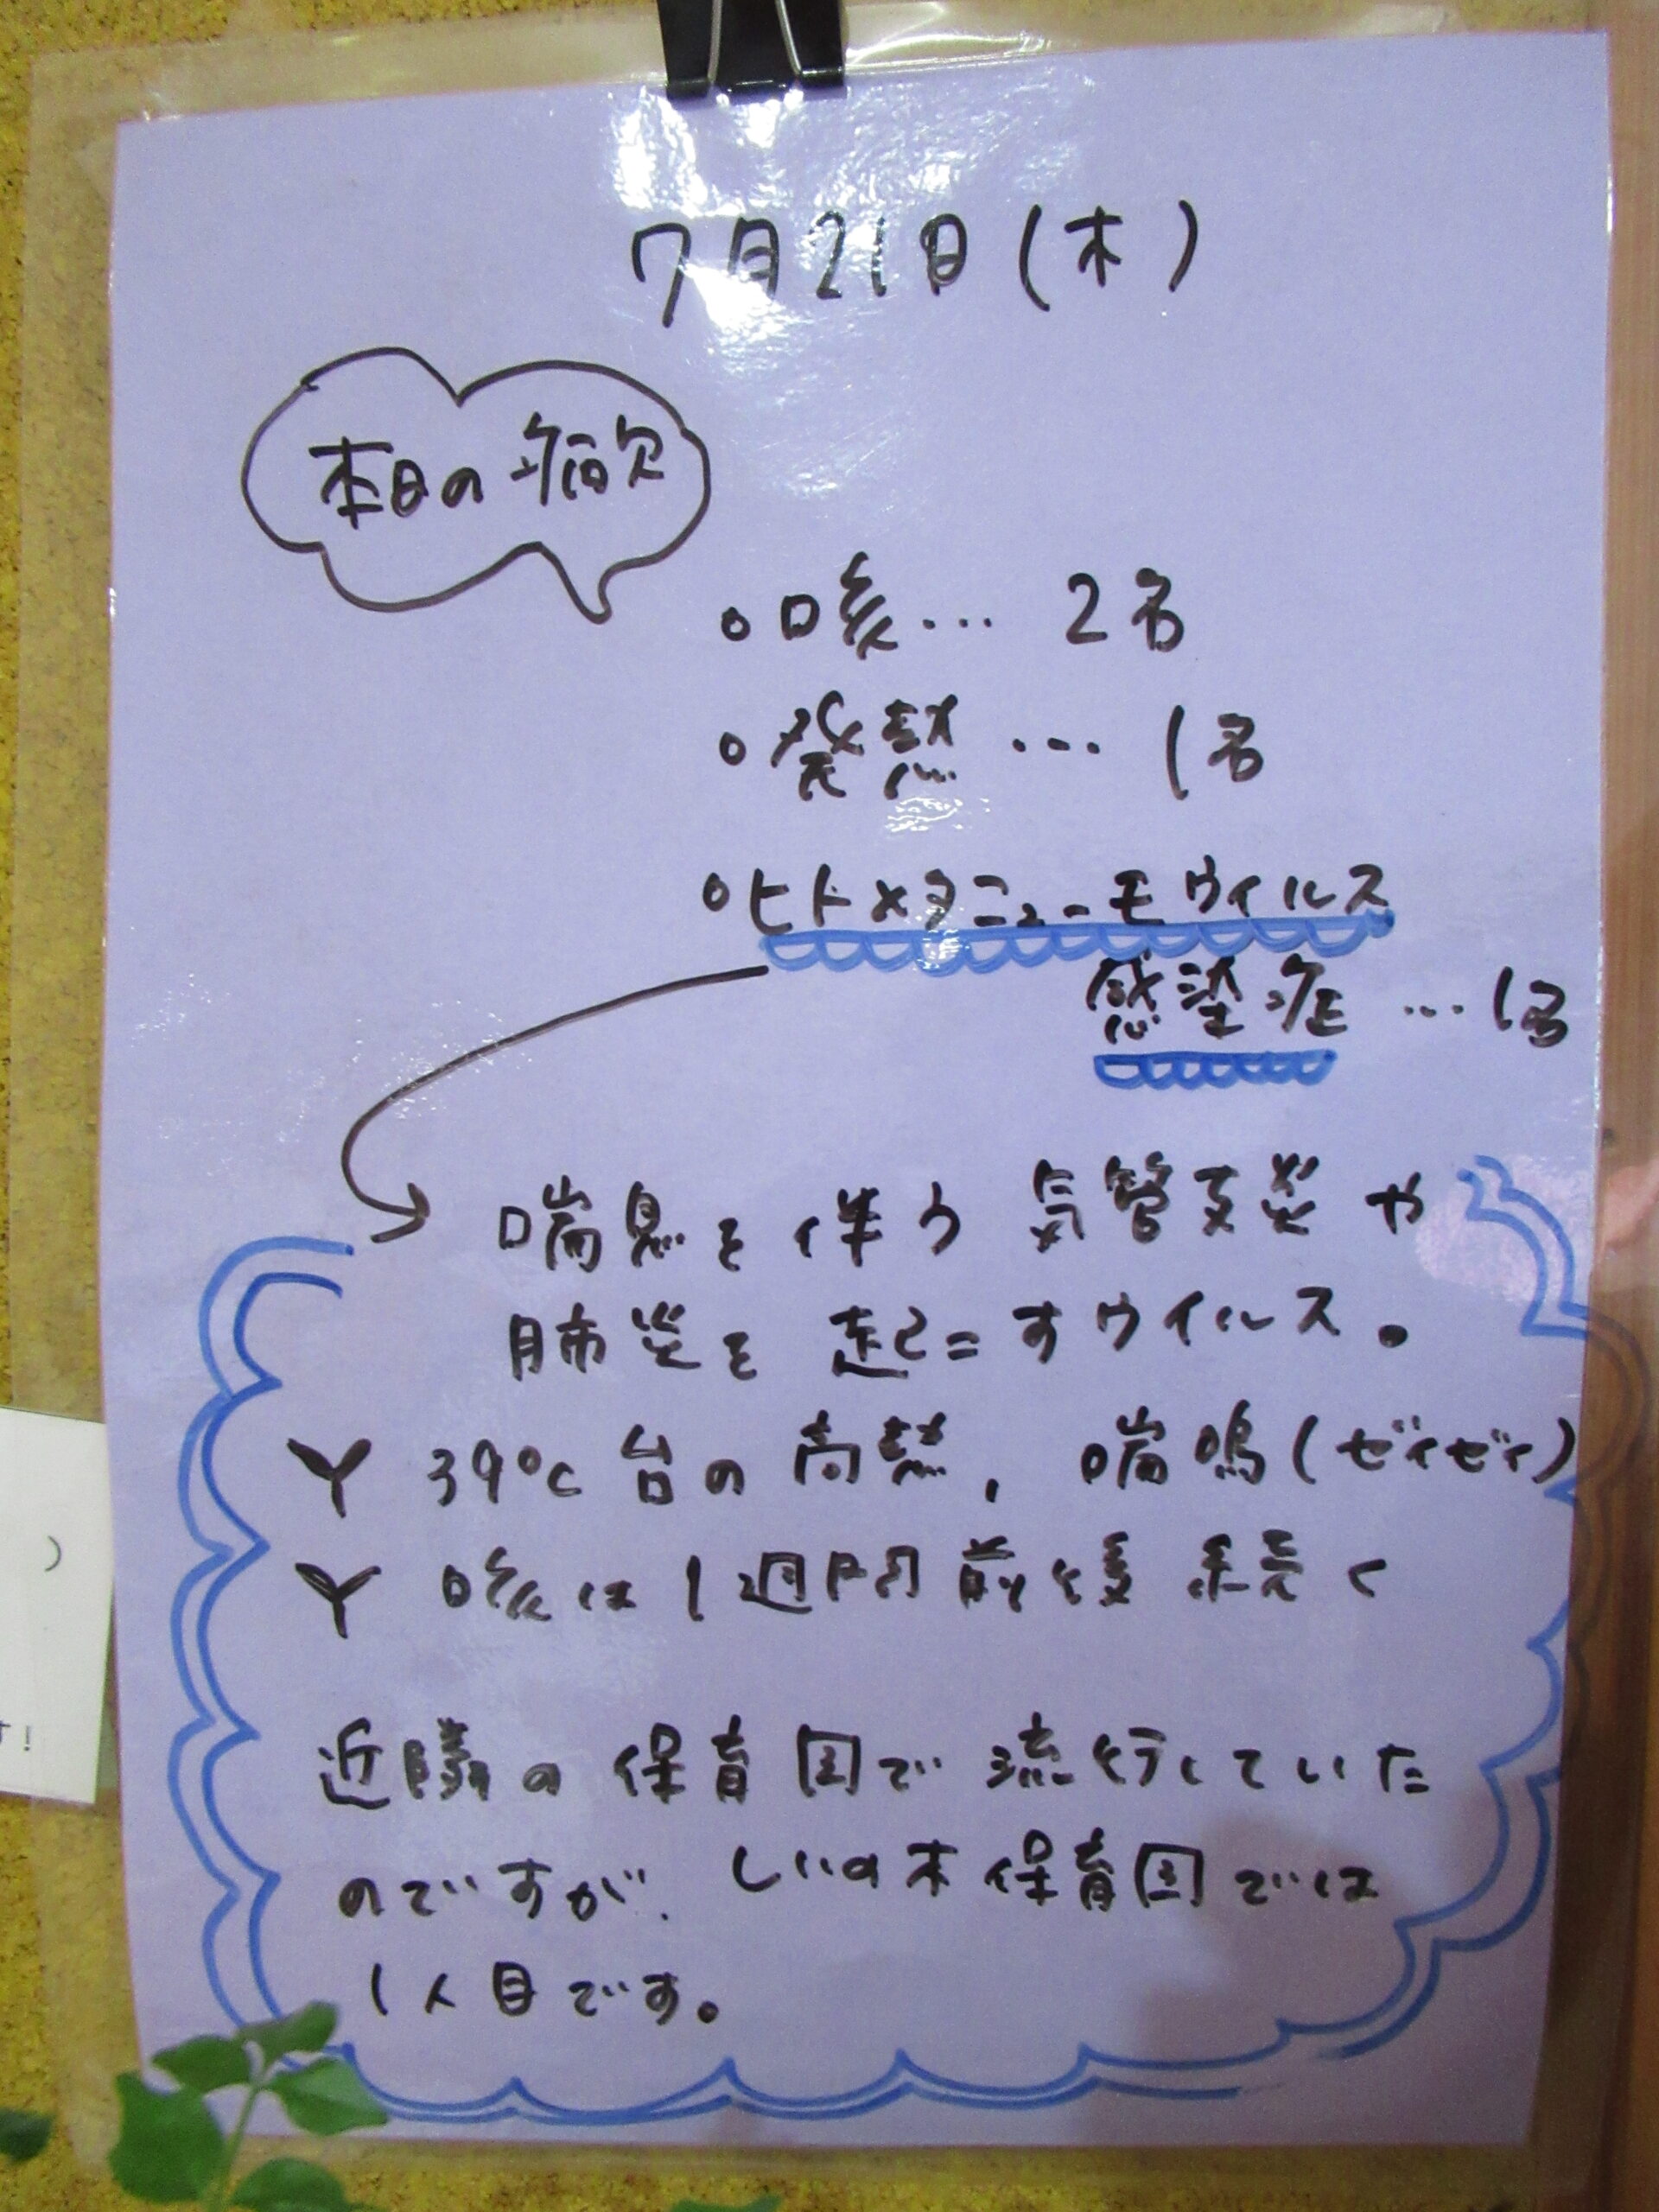 7月21日(木)
本日の病欠
○咳… 2名
○発熱… 1名
○ヒトメタニューモウイルス
感染症…1名
喘息を伴う気管支炎や
肺炎を起こすウイルス。
39℃台の高熱、喘鳴(ゼィゼィ)
咳は1週間前後続く
近隣の保育園で流行していた
のですが、しいの木保育園では
1人目です。
)
す!